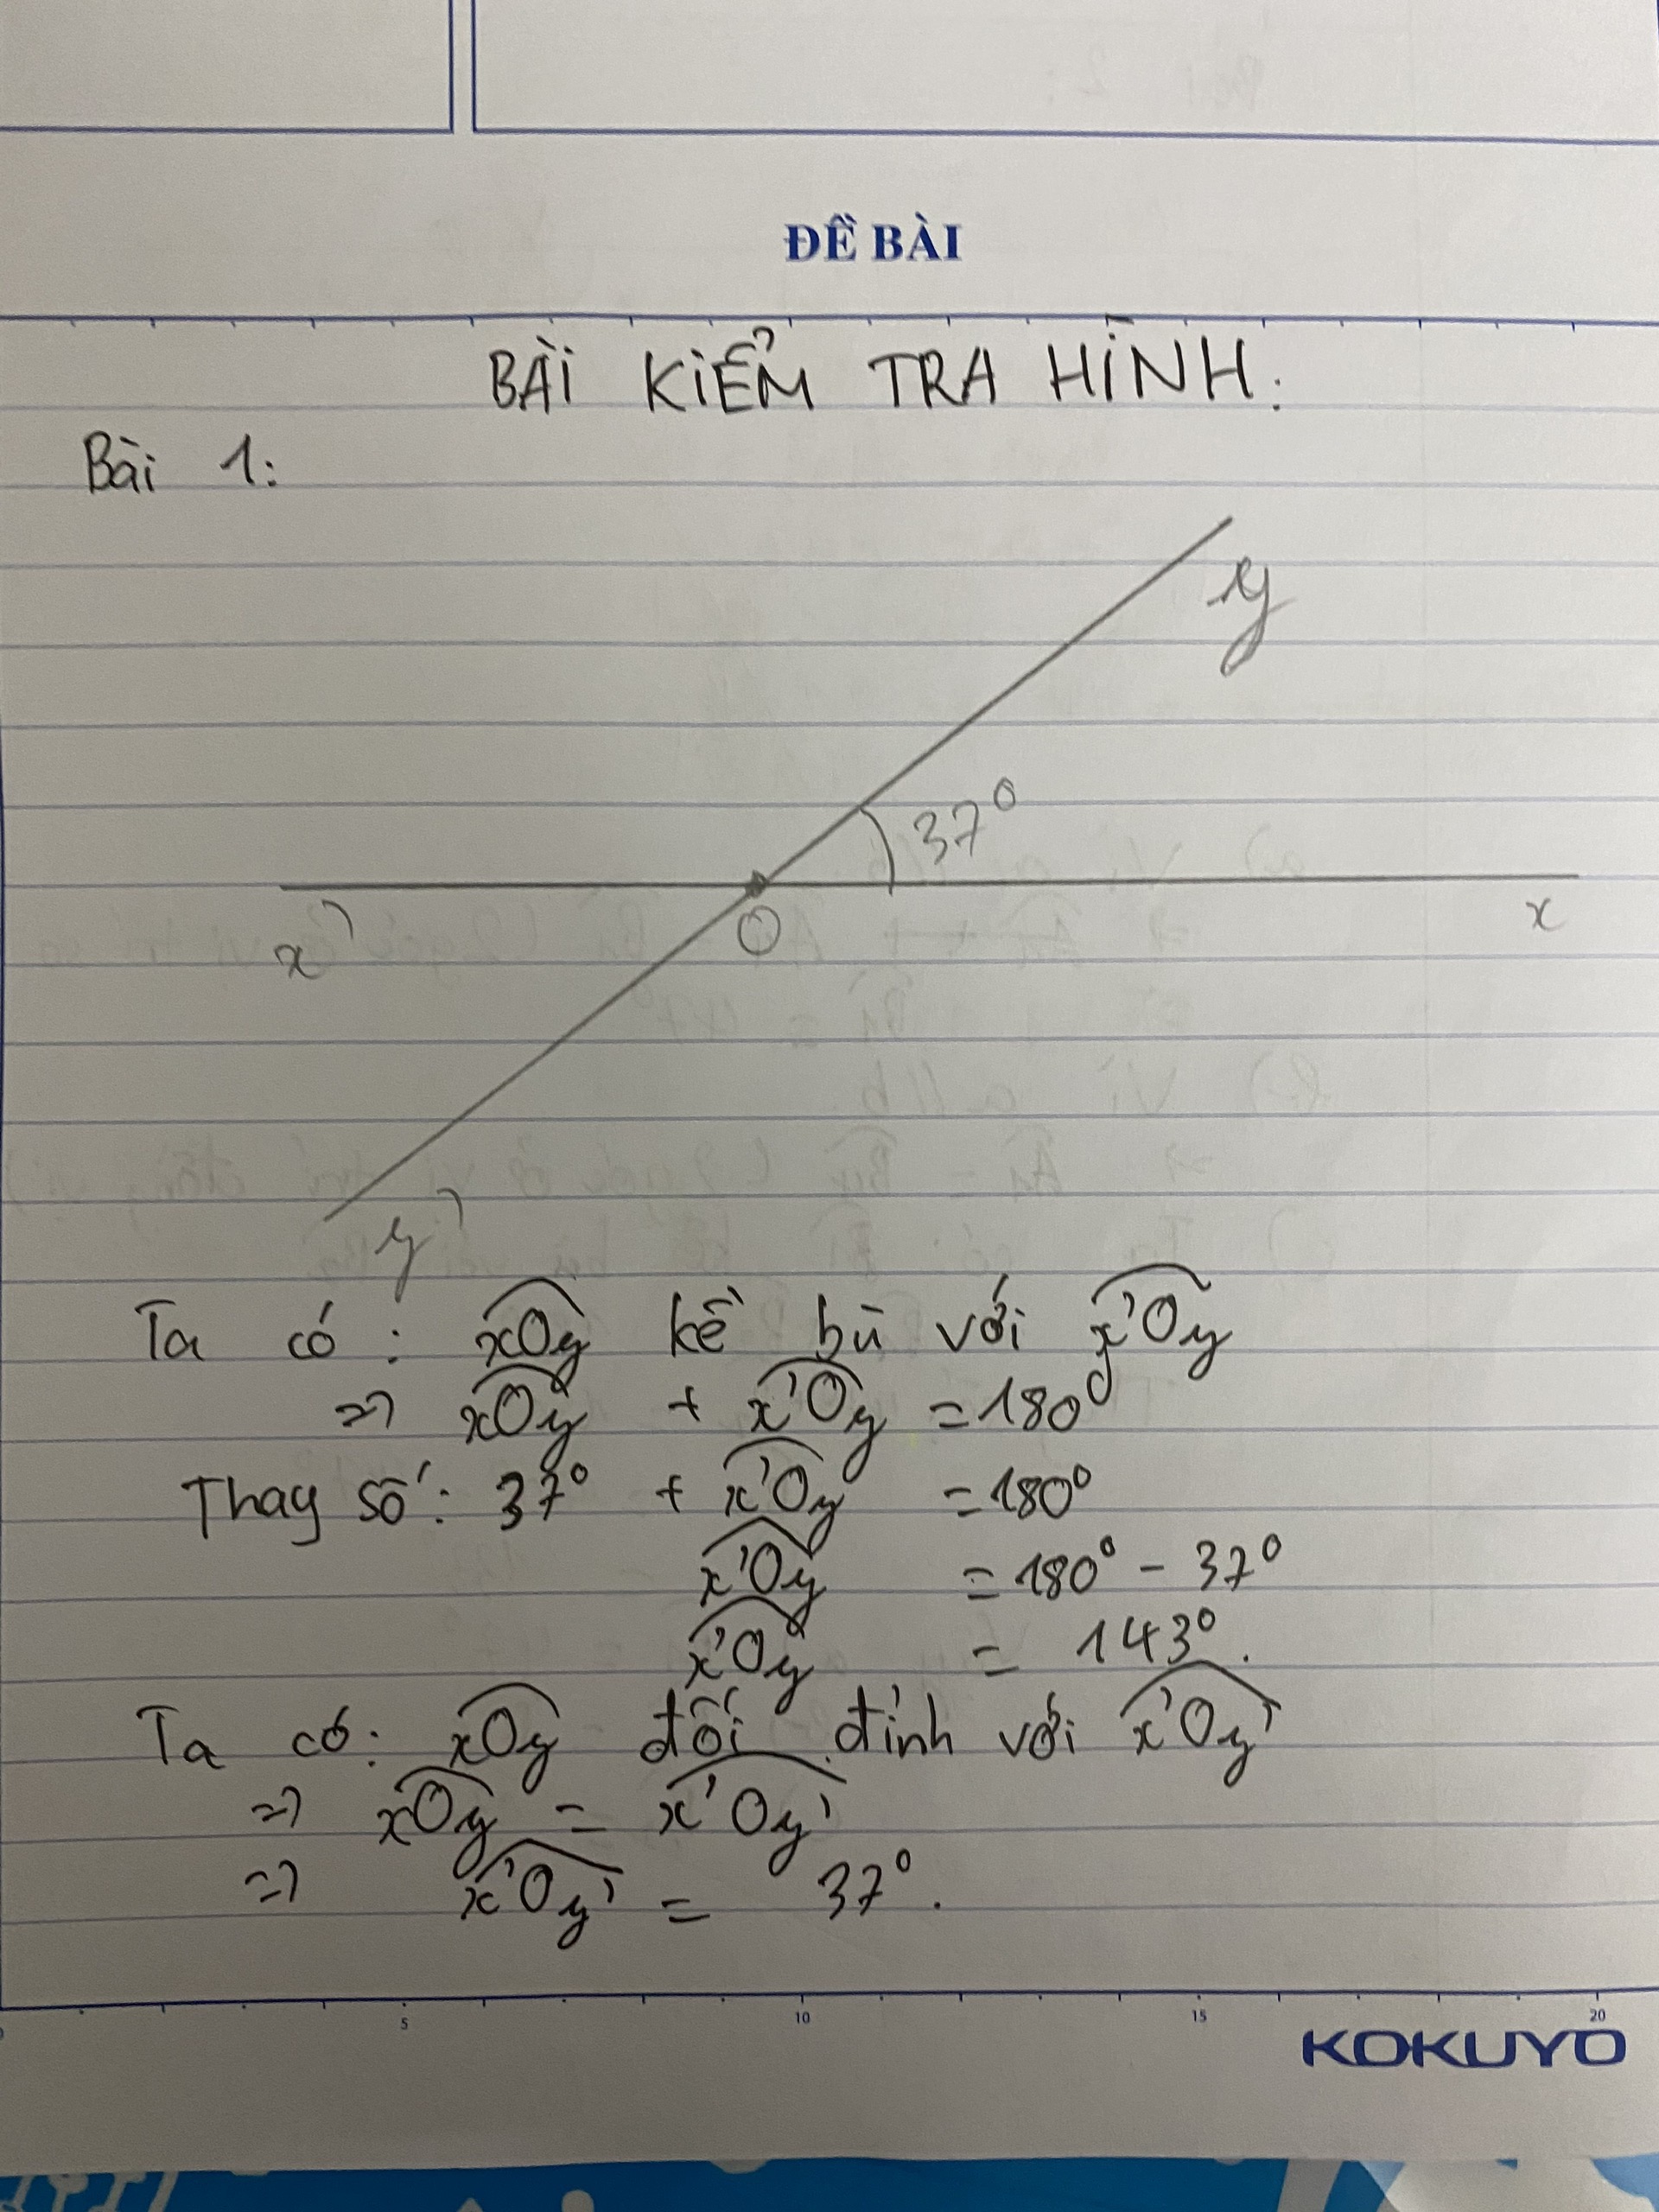 ĐỀ BÀI
BÀI KIỂM TRA HÌNH:
Bài 1:
y
37°
x'
O
x
y'
Ta có: xOy kề bù với x'Oy
=> xOy + x'Oy = 180°
Thay số: 37° + x'Oy = 180°
x'Oy = 180° - 37°
x'Oy = 143°.
Ta có: xOy đối đỉnh với x'Oy'
=> xOy = x'Oy'
=> x'Oy' = 37°.
5 10 15 20
KOKUYO